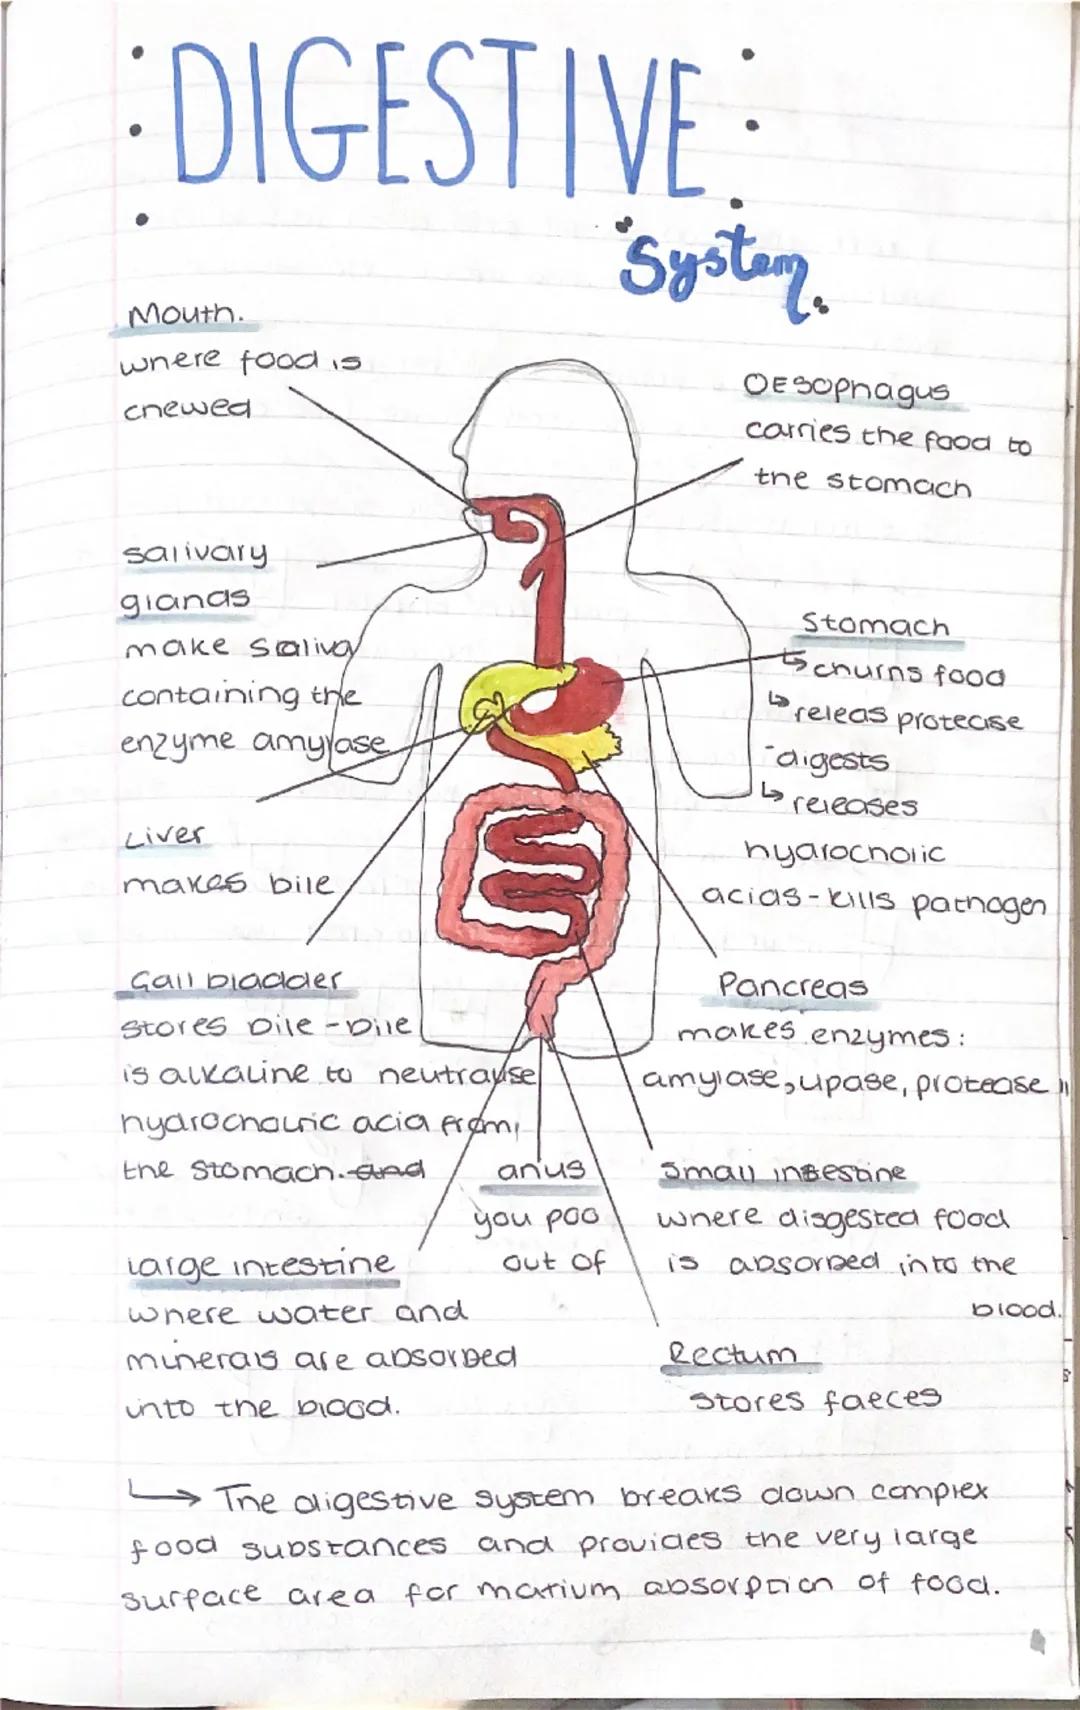 DIGESTIVE
System.
Mouth.
where food is
chewed
Oesophagus
carries the food to
the stomach
salivary
glands
make saliva
containing the
enzyme amylase
Stomach
↳ churns food
↳ releas protease
- digests
↳ releases
hydrocholic
acids - kills pathogen
Liver
makes bile
Gall bladder
stores bile - bile
is alkaline to neutralise
hydrochouric acid from
the stomach. and
Pancreas
makes enzymes:
amylase, lipase, protease
anus
you poo
out of
Small intestine
where disgested food
is absorbed into the
blood.
Large intestine
where water and
minerals are absorbed
into the blood.
Rectum
stores faeces
↳ The digestive system breaks down complex
food substances and provides the very large
surface area for absorption of food.